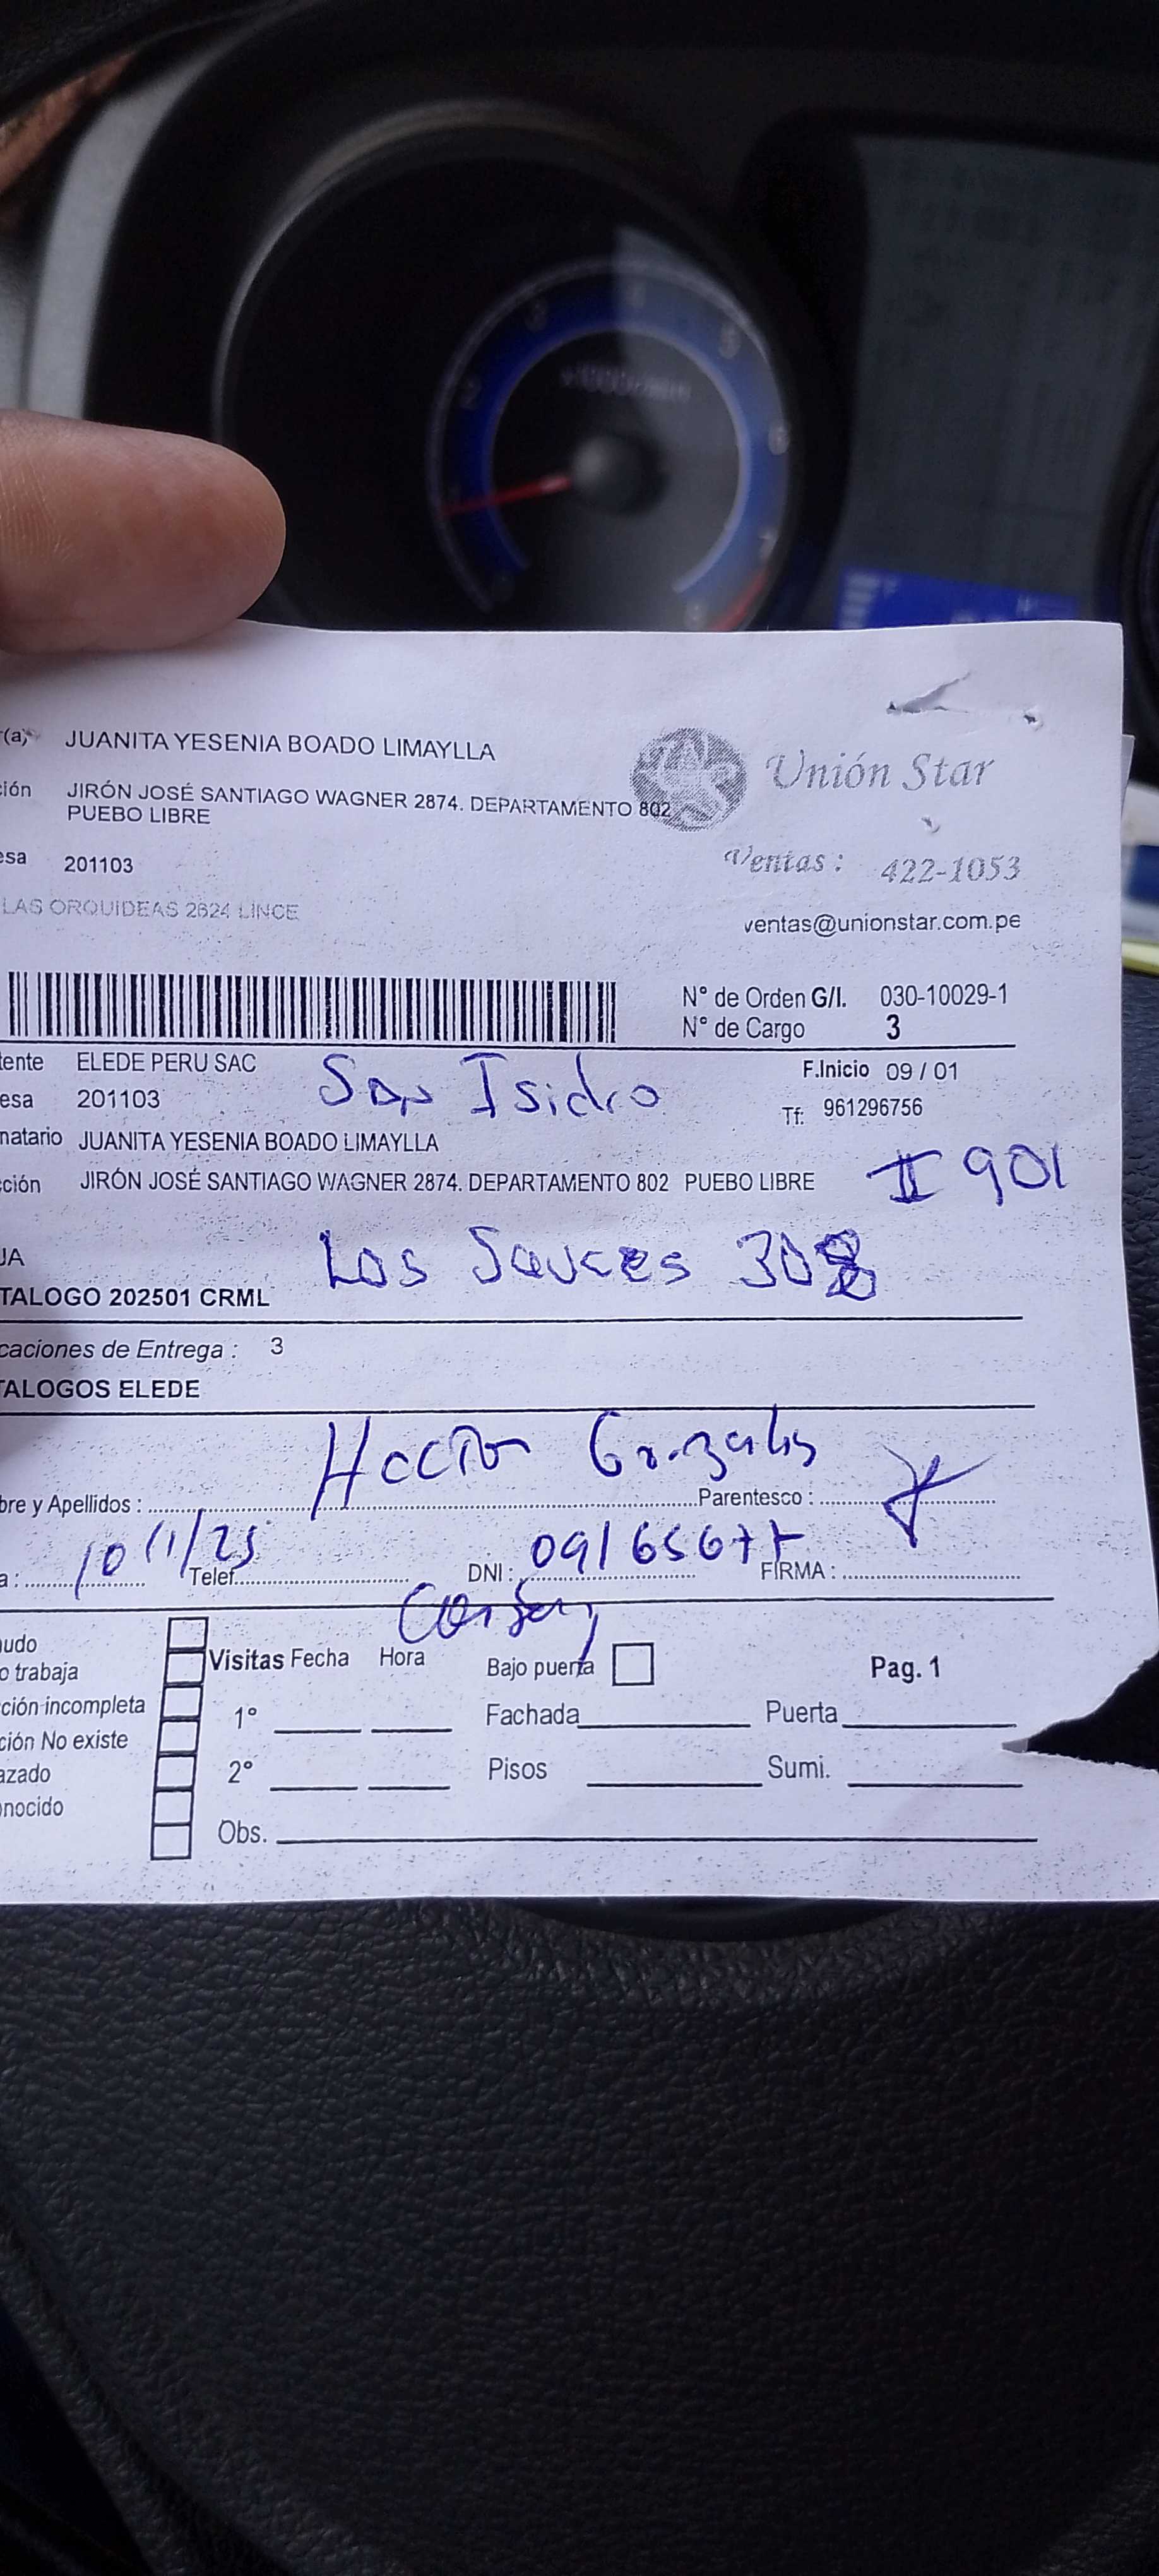 r(a) JUANITA YESENIA BOADO LIMAYLLA
ción JIRÓN JOSÉ SANTIAGO WAGNER 2874. DEPARTAMENTO 802
PUEBO LIBRE
Unión Star
esa 201103
Ventas : 422-1053
LAS ORQUIDEAS 2624 LINCE
ventas@unionstar.com.pe
N° de Orden G/I. 030-10029-1
N° de Cargo 3
tente ELEDE PERU SAC
San Isidro
F.Inicio 09 / 01
esa 201103
Tf: 961296756
natario JUANITA YESENIA BOADO LIMAYLLA
cción JIRÓN JOSÉ SANTIAGO WAGNER 2874. DEPARTAMENTO 802 PUEBO LIBRE
II 901
JA
Los Sauces 308
TALOGO 202501 CRML
caciones de Entrega : 3
TALOGOS ELEDE
Hector Gonzales
bre y Apellidos : Parentesco :
a : 10/1/25 Telef. DNI : 09165677 FIRMA :
udo
o trabaja
Visitas Fecha Hora Bajo puerta Pag. 1
ción incompleta
1° Fachada Puerta
ción No existe
azado
2° Pisos Sumi.
onocido
Obs.